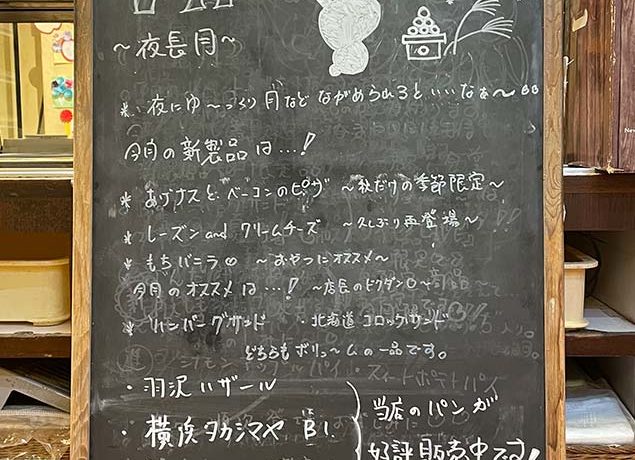 〜夜長月〜
* 夜にゆ〜っくり月などながめられるといいなぁ〜
今月の新製品は…!
* あげナスとベーコンのピザ 〜秋だけの季節限定〜
* レーズンandクリームチーズ 〜久しぶり再登場〜
* もちバニラ 〜おやつにオススメ〜
今月のオススメは…! 〜店長のドクダン〜
* ハンバーグサンド ・北海道コロッケサンド
どちらもボリュームの一品です。
・羽沢ハザール
・横浜タカシマヤ B1
当店のパンが
好評販売中です!